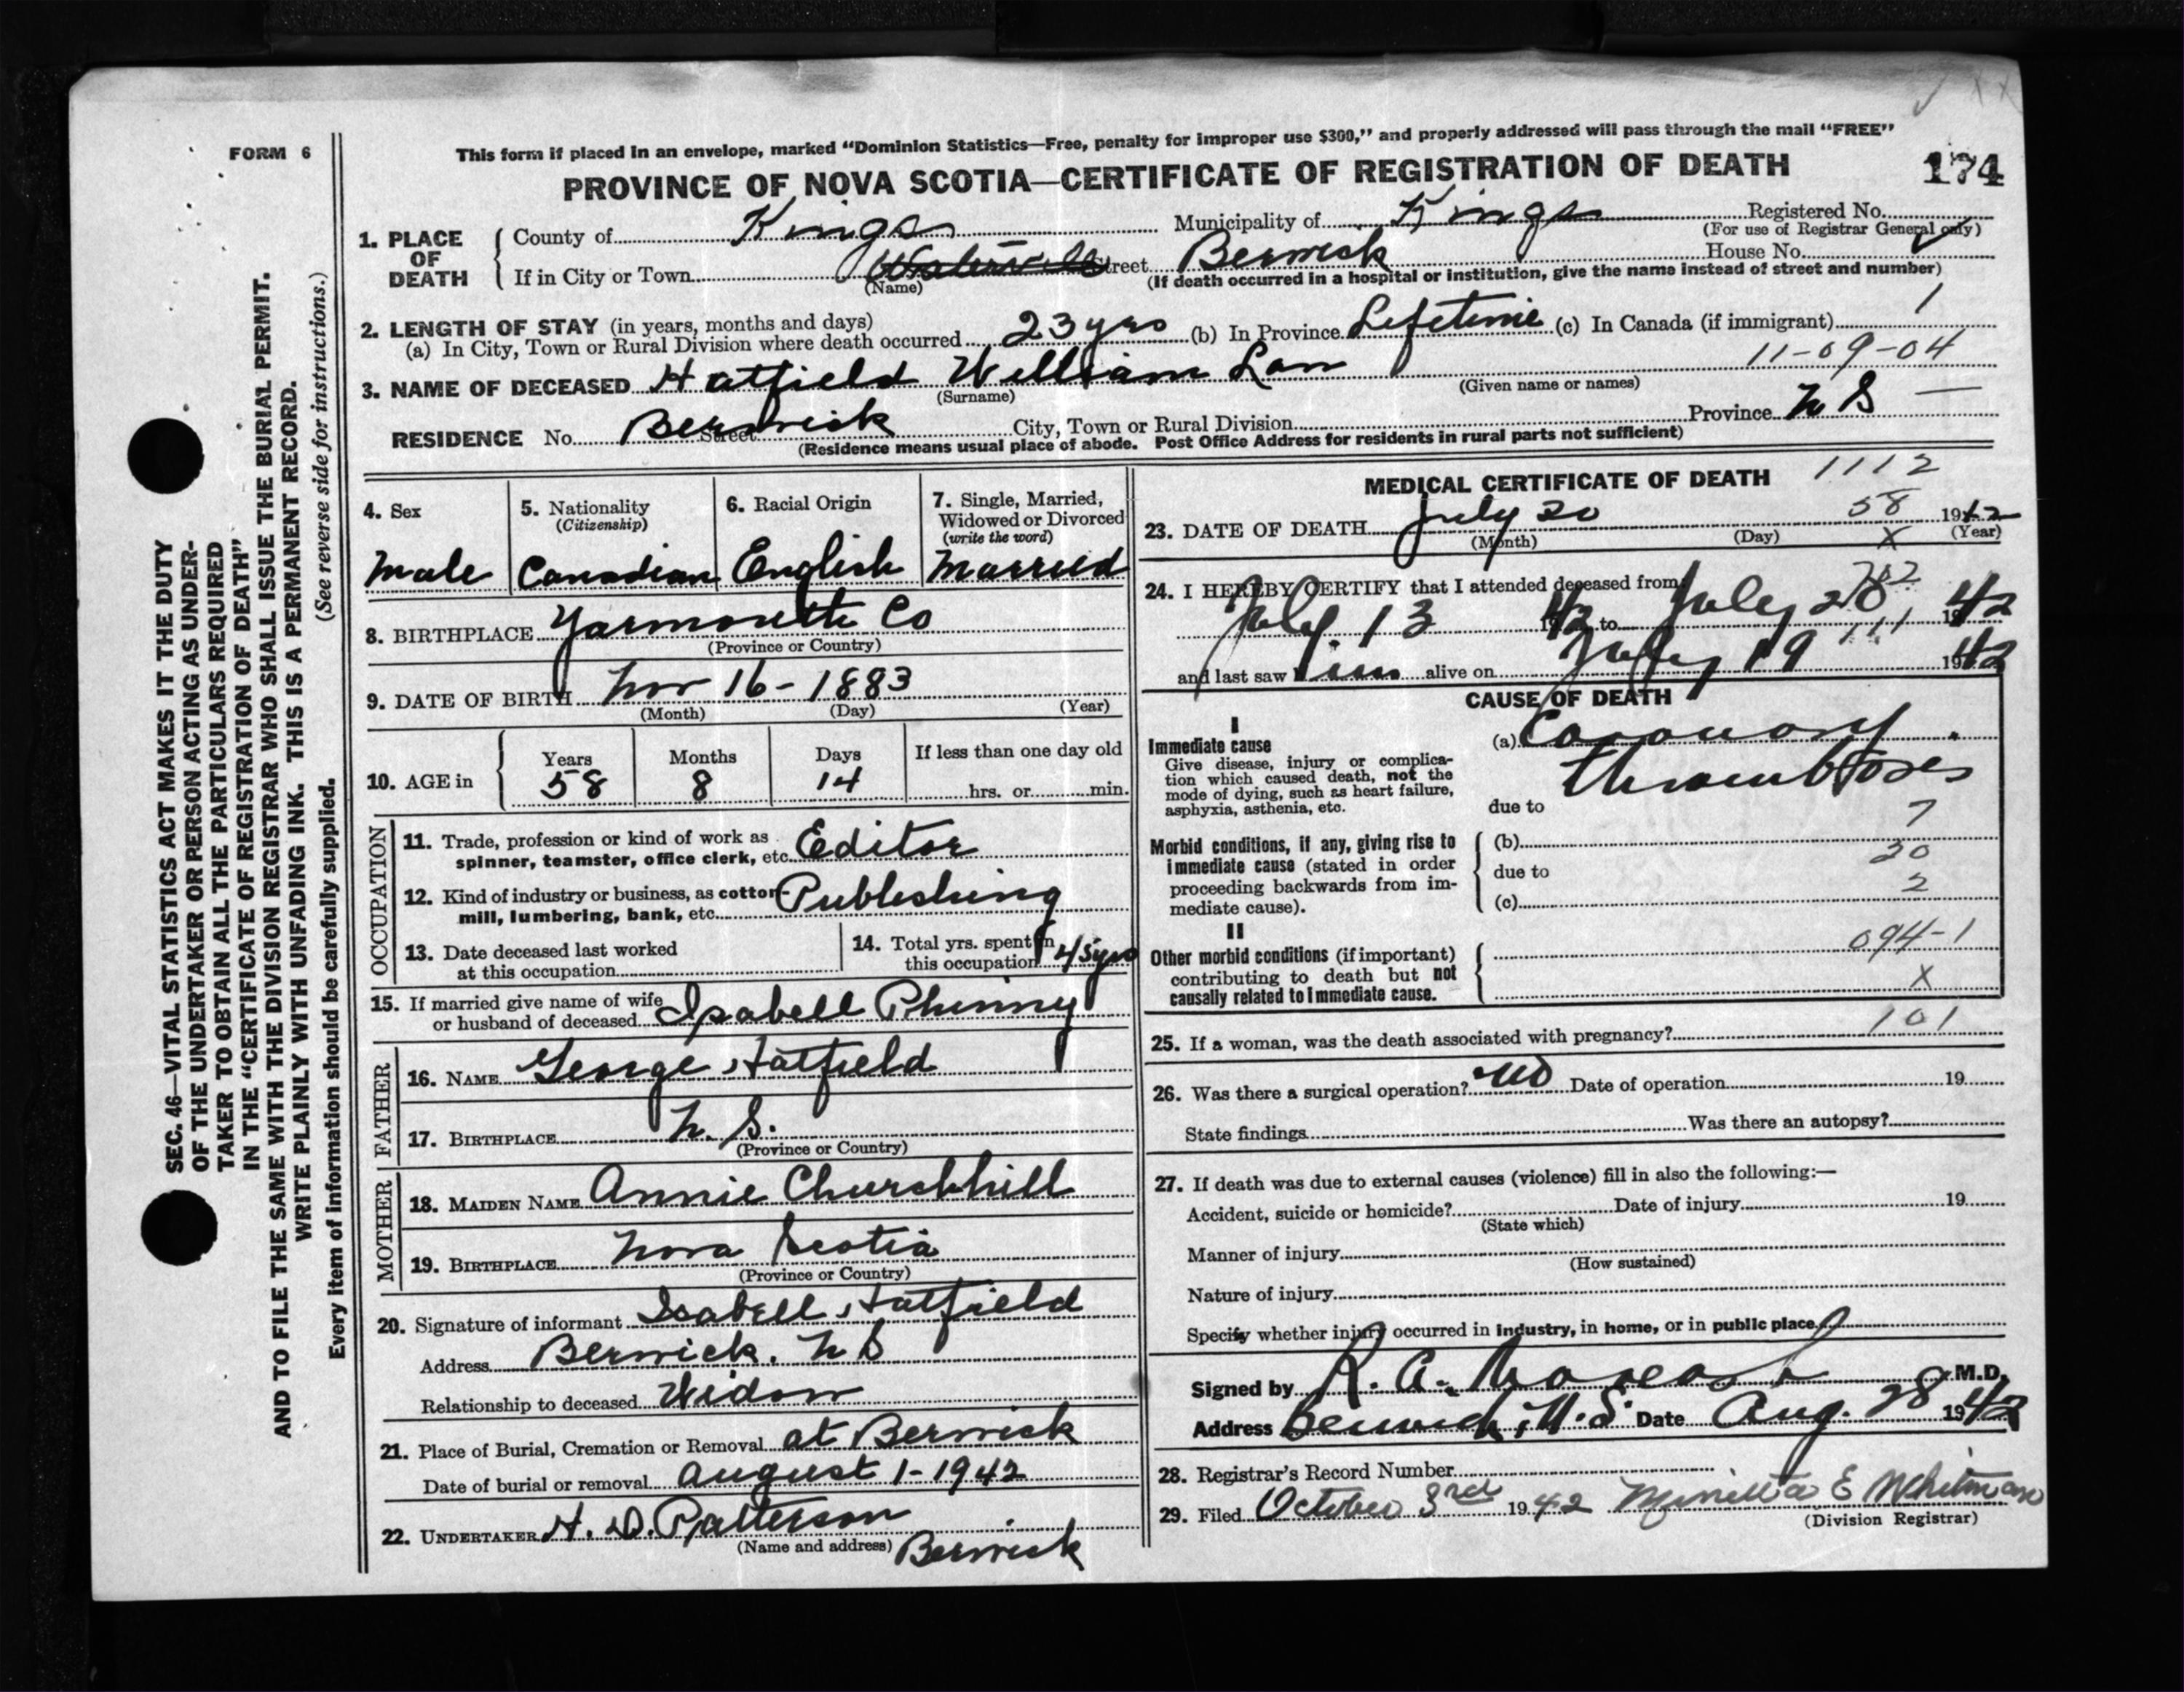 FORM 6
This form if placed in an envelope, marked "Dominion Statistics—Free, penalty for improper use $300," and properly addressed will pass through the mail "FREE"
PROVINCE OF NOVA SCOTIA—CERTIFICATE OF REGISTRATION OF DEATH
174
SEC. 46—VITAL STATISTICS ACT MAKES IT THE DUTY
OF THE UNDERTAKER OR PERSON ACTING AS UNDER-
TAKER TO OBTAIN ALL THE PARTICULARS REQUIRED
IN THE "CERTIFICATE OF REGISTRATION OF DEATH"
AND TO FILE THE SAME WITH THE DIVISION REGISTRAR WHO SHALL ISSUE THE BURIAL PERMIT.
WRITE PLAINLY WITH UNFADING INK. THIS IS A PERMANENT RECORD.
Every item of information should be carefully supplied. (See reverse side for instructions.)
1. PLACE OF DEATH
County of Kings Municipality of Kings Registered No.
(For use of Registrar General only)
If in City or Town Waterville Street Berwick House No.
(Name) (If death occurred in a hospital or institution, give the name instead of street and number)
2. LENGTH OF STAY (in years, months and days) 1
(a) In City, Town or Rural Division where death occurred 23 yrs (b) In Province Lifetime (c) In Canada (if immigrant)
11-09-04
3. NAME OF DECEASED Hatfield William Lan
(Surname) (Given name or names)
RESIDENCE No. Street Berwick City, Town or Rural Division Province N S
(Residence means usual place of abode. Post Office Address for residents in rural parts not sufficient)
4. Sex
Male
5. Nationality
(Citizenship)
Canadian
6. Racial Origin
English
7. Single, Married,
Widowed or Divorced
(write the word)
Married
8. BIRTHPLACE Yarmouth Co
(Province or Country)
9. DATE OF BIRTH Nov 16-1883
(Month) (Day) (Year)
10. AGE in
Years Months Days If less than one day old
58 8 14 hrs. or min.
OCCUPATION
11. Trade, profession or kind of work as
spinner, teamster, office clerk, etc. Editor
12. Kind of industry or business, as cotton-
mill, lumbering, bank, etc. Publishing
13. Date deceased last worked
at this occupation
14. Total yrs. spent in
this occupation 45 yrs
15. If married give name of wife
or husband of deceased Isabell Phinny
FATHER
16. NAME George Hatfield
17. BIRTHPLACE N. S.
(Province or Country)
MOTHER
18. MAIDEN NAME Annie Churchhill
19. BIRTHPLACE Nova Scotia
(Province or Country)
20. Signature of informant Isabell Hatfield
Address Berwick. N S
Relationship to deceased Widow
21. Place of Burial, Cremation or Removal at Berwick
Date of burial or removal August 1-1942
22. UNDERTAKER H. D. Patterson
(Name and address) Berwick
MEDICAL CERTIFICATE OF DEATH 1112
58
23. DATE OF DEATH July 30 1942
(Month) (Day) X (Year)
24. I HEREBY CERTIFY that I attended deceased from
July 13 1942 to July 1942
111
and last saw him alive on July 19 1942
CAUSE OF DEATH
I
Immediate cause
Give disease, injury or complica-
tion which caused death, not the
mode of dying, such as heart failure,
asphyxia, asthenia, etc.
(a) Coronary
Thrombosis
due to
7
Morbid conditions, if any, giving rise to
immediate cause (stated in order
proceeding backwards from im-
mediate cause).
(b)
30
due to
2
(c)
II
Other morbid conditions (if important)
contributing to death but not
causally related to immediate cause.
094-1
X
101
25. If a woman, was the death associated with pregnancy?
26. Was there a surgical operation? no Date of operation 19
State findings Was there an autopsy?
27. If death was due to external causes (violence) fill in also the following:—
Accident, suicide or homicide? Date of injury 19
(State which)
Manner of injury
(How sustained)
Nature of injury
Specify whether injury occurred in industry, in home, or in public place
Signed by R. A. M.D.
Address Berwick, N. S. Date Aug. 28 1942
28. Registrar's Record Number
29. Filed October 3rd 1942 E Whitman
(Division Registrar)